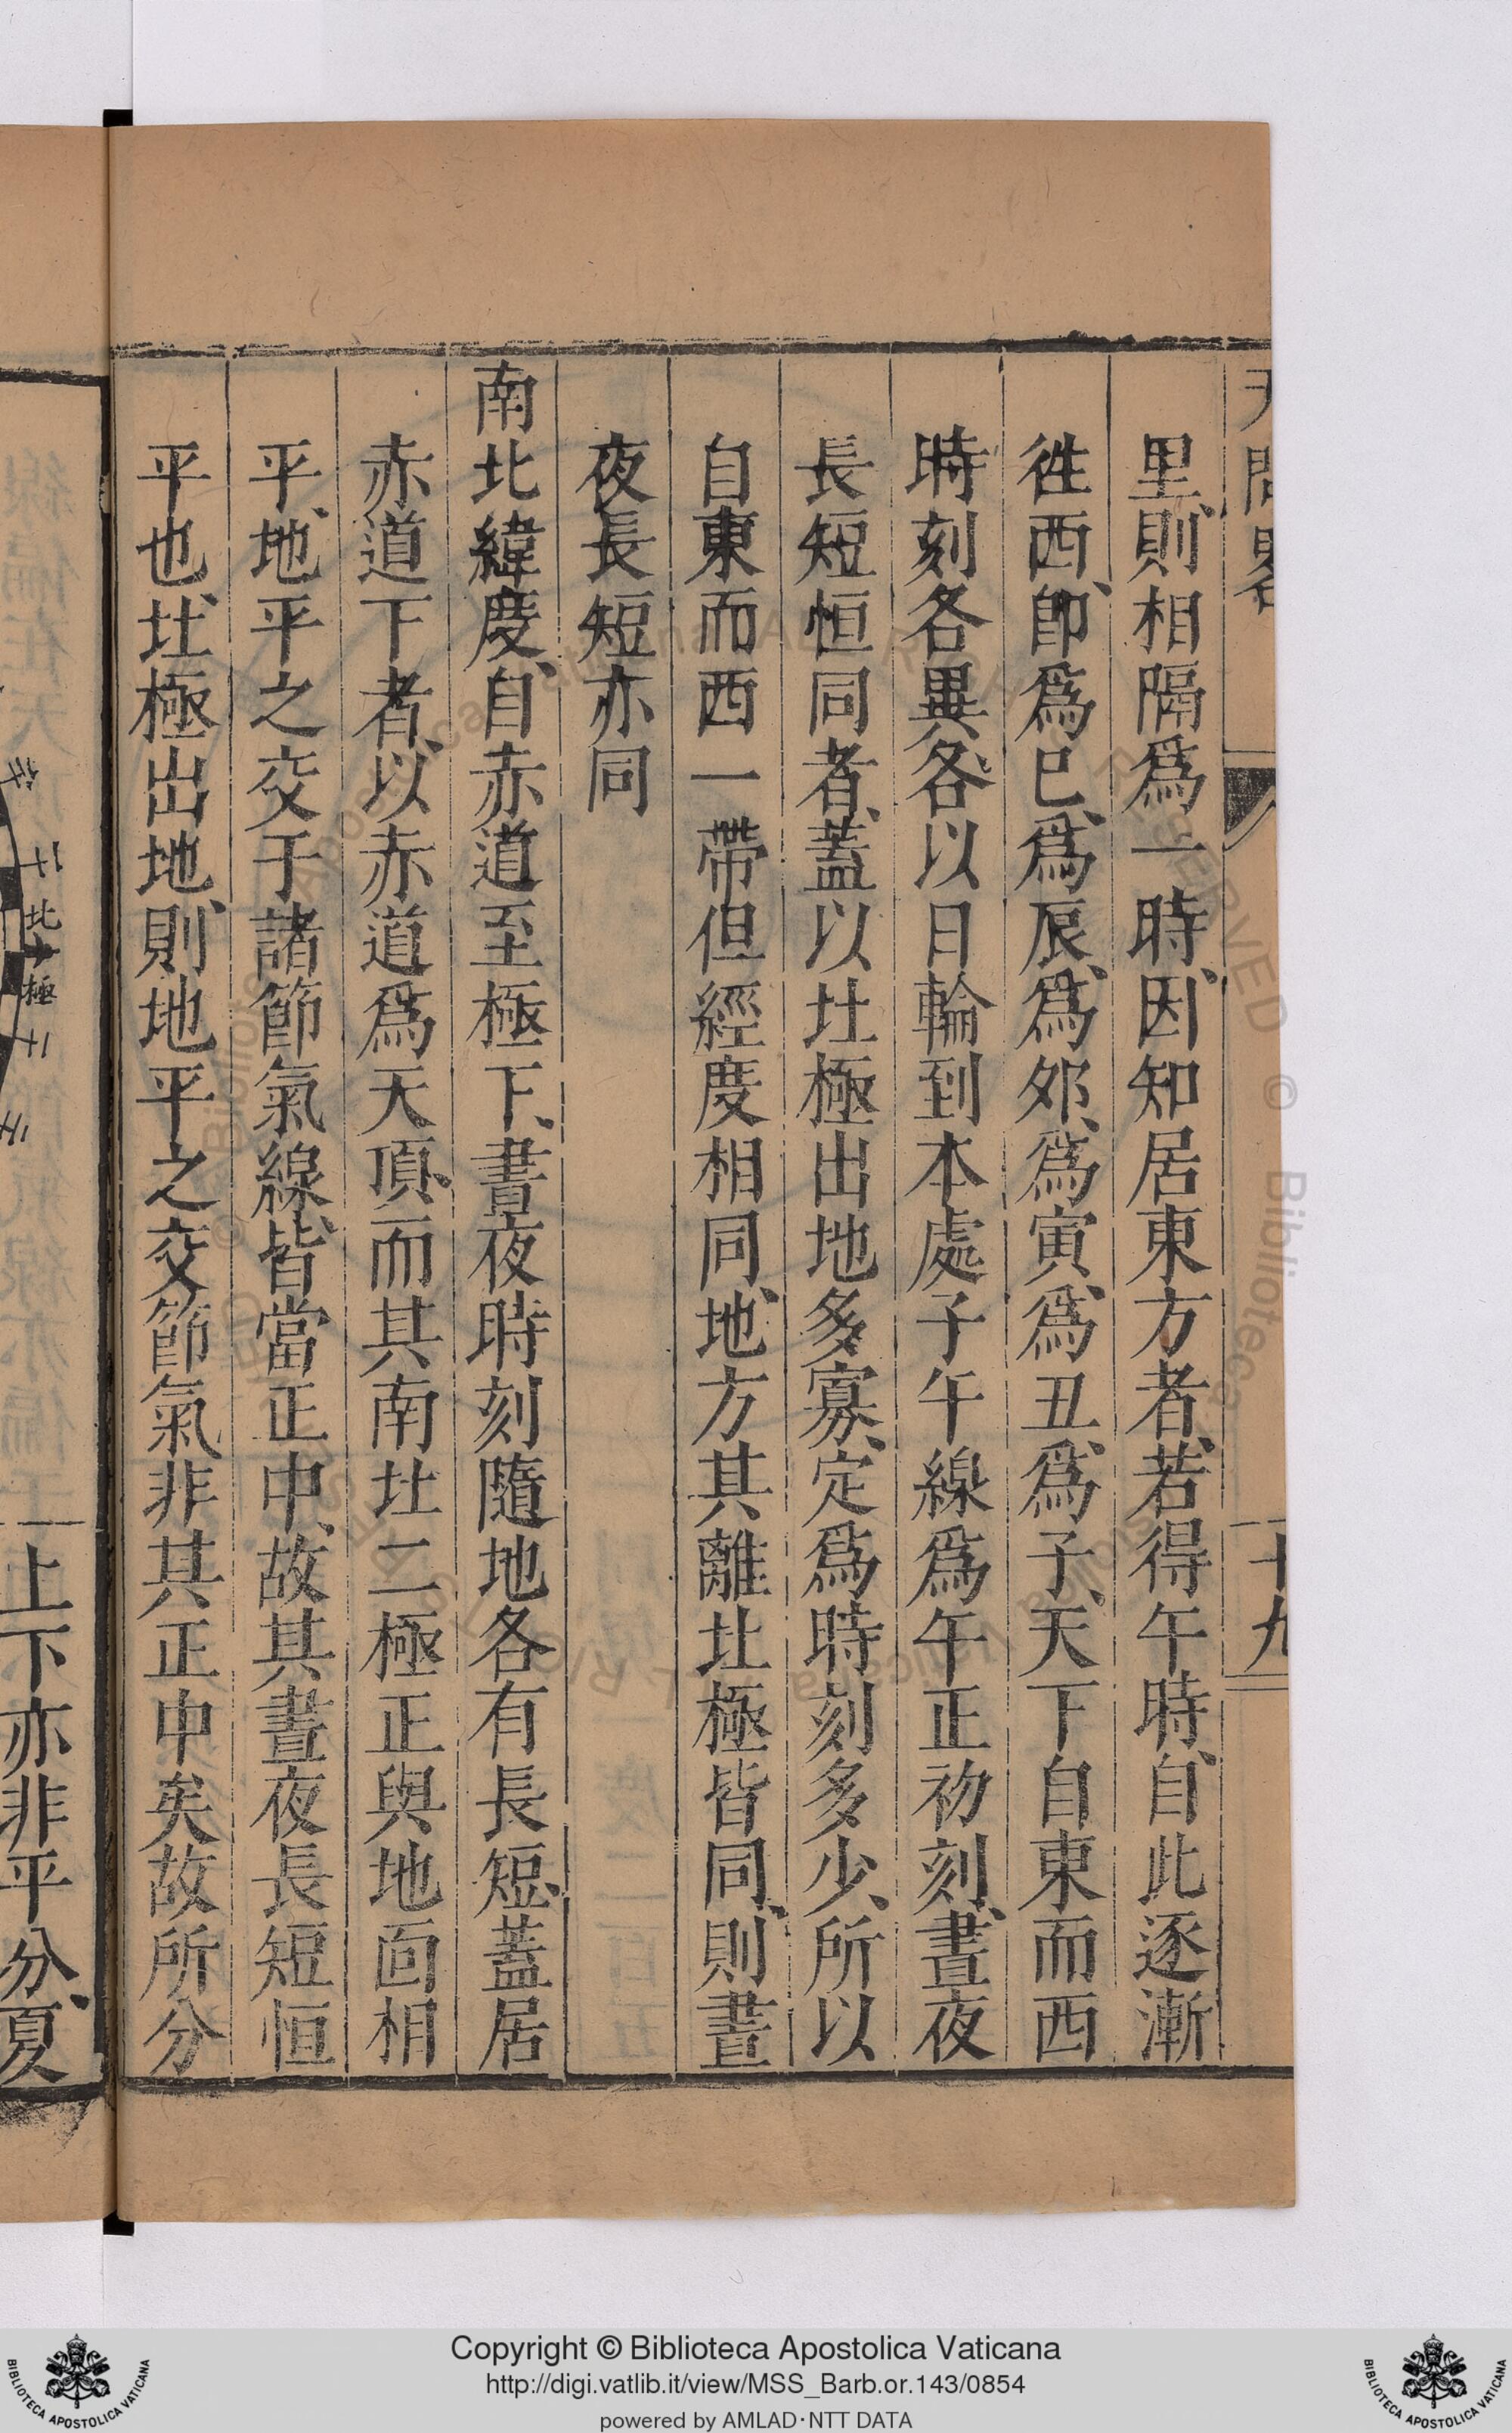 里、則相隔爲一時、因知居東方者、若得午時、自此逐漸
徃西、卽爲巳、爲辰、爲夘、爲寅、爲丑、爲子、天下自東而西
時刻各異、各以日輪到本處子午線爲午正初刻、晝夜
長短恒同者、蓋以北極出地多寡、定爲時刻多少、所以
自東而西一帶但經度相同、地方其離北極皆同、則晝
夜長短亦同
南北緯度、自赤道至極下、晝夜時刻隨地各有長短、蓋居
赤道下者、以赤道爲天頂、而其南北二極正與地面相
平、地平之交于諸節氣線、皆當正中、故其晝夜長短恒
平也、北極出地、則地平之交節氣非其正中矣故所分
十九
北極
上下亦非平分、夏
Copyright © Biblioteca Apostolica Vaticana
http://digi.vatlib.it/view/MSS_Barb.or.143/0854
powered by AMLAD·NTT DATA
BIBLIOTECA APOSTOLICA VATICANA
BIBLIOTECA APOSTOLICA VATICANA